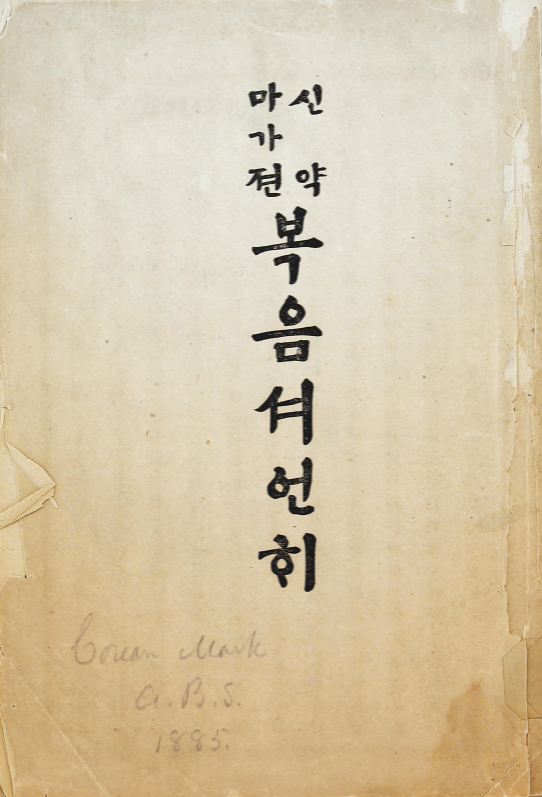 신약
마가젼
복음셔언ᄒᆡ
Corean Mark
A.B.S.
1885.